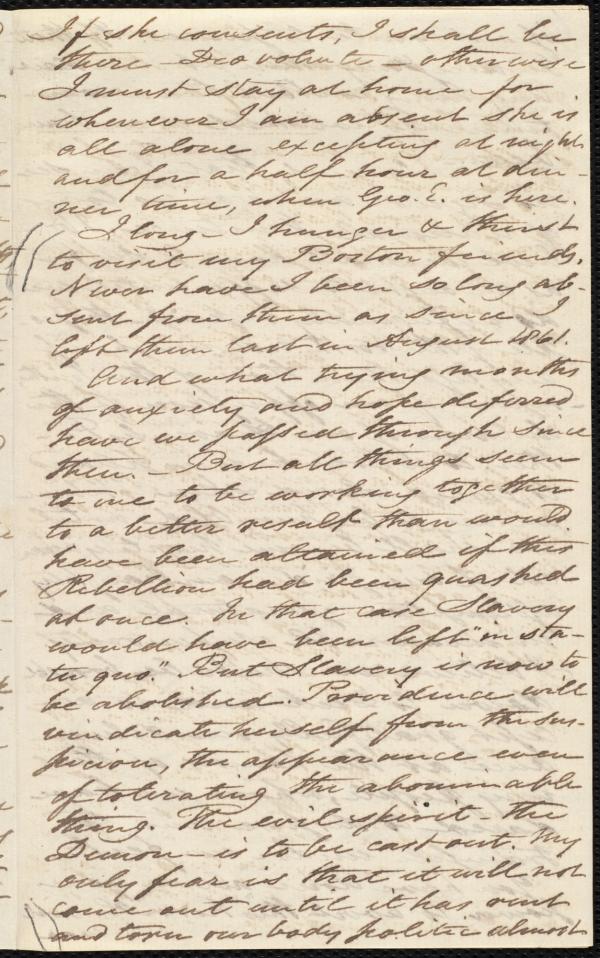 If she consents, I shall be
there - Deo volente - otherwise
I must stay at home - for
whenever I am absent she is
all alone excepting at night
and for a half hour at din-
ner time, when Geo. E. is here.
I long - I hunger & thirst
to visit my Boston friends.
Never have I been so long ab-
sent from them as since I
left them last in August 1861.
And what trying months
of anxiety and hope deferred
have we passed through since
then. - But all things seem
to me to be working together
to a better result than would
have been attained if this
Rebellion had been quashed
at once. In that case Slavery
would have been left "in sta-
tu quo." But Slavery is now to
be abolished. Providence will
vindicate herself from the sus-
picion, the appearance even
of tolerating the abominable
thing. The evil spirit - the
Demon - is to be cast out. My
only fear is that it will not
come out until it has rent
and torn our body politic almost